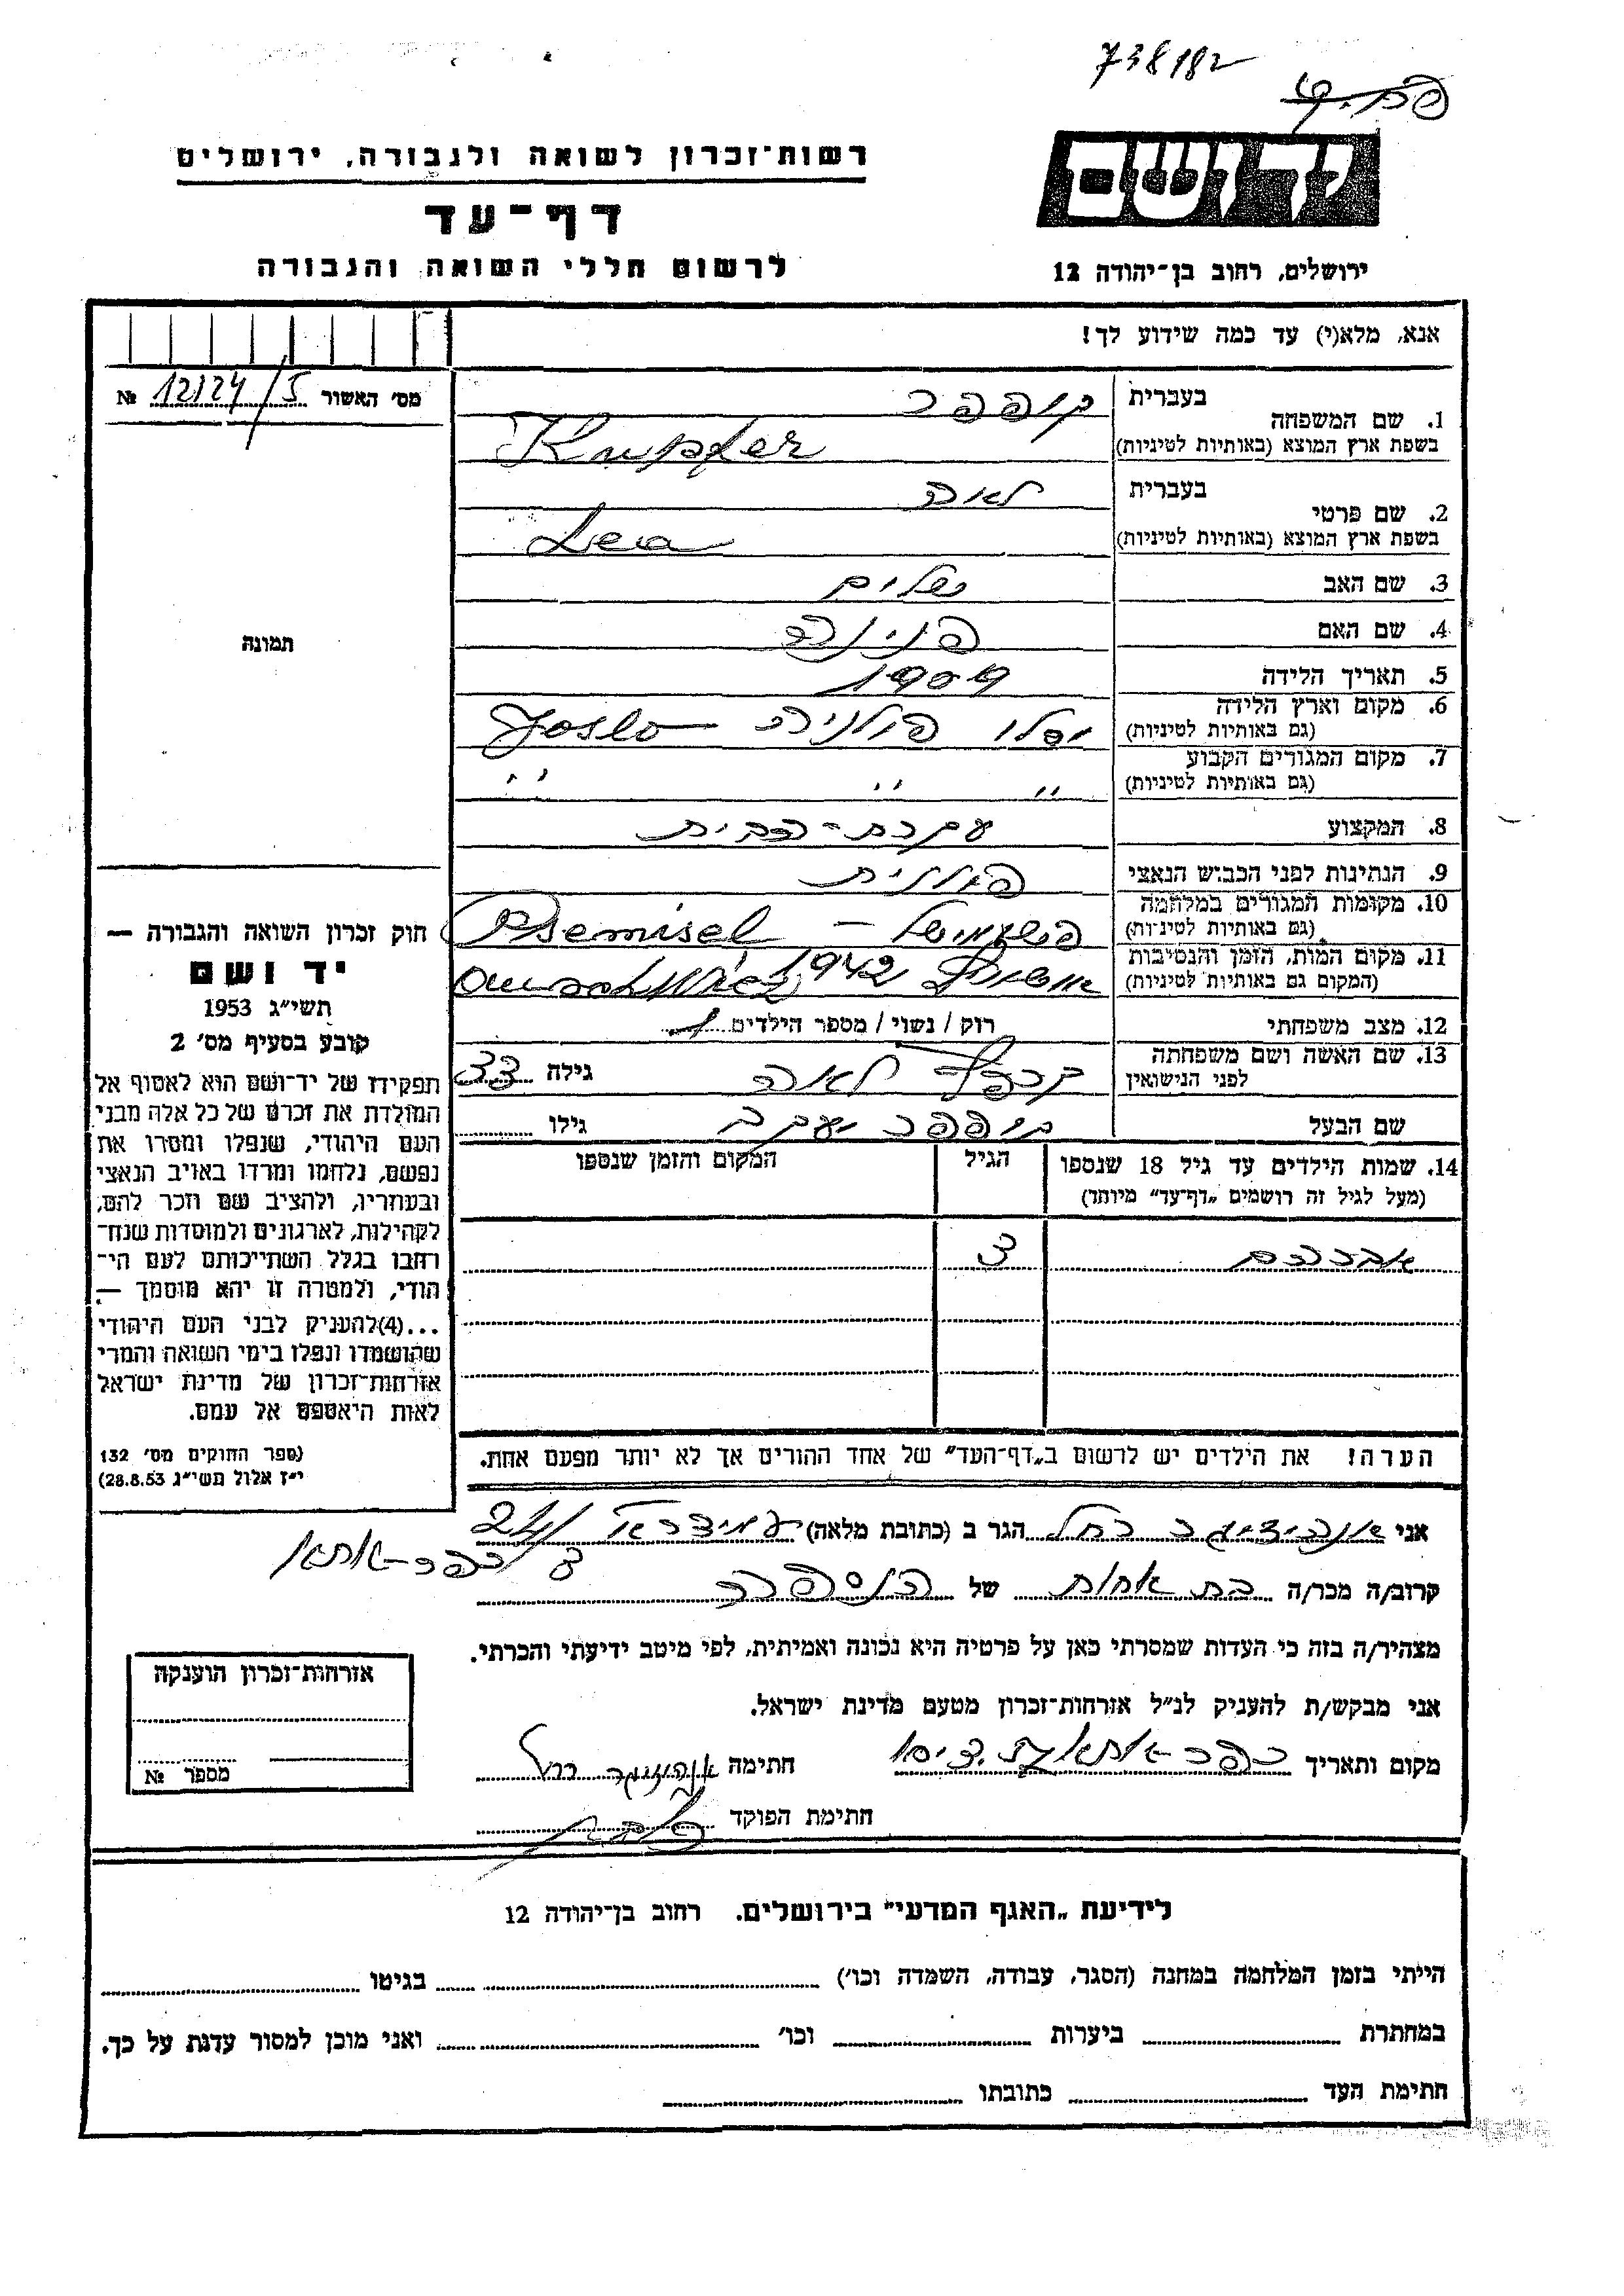 738182
רשות־זכרון לשואה ולגבורה, ירושלים
יד ושם
דף־עד
לרשום חללי השואה והגבורה
ירושלים, רחוב בן־יהודה 12
אנא, מלא(י) עד כמה שידוע לך!
מס׳ האשור 12124/5 №
תמונה
1. שם המשפחה בעברית קופפר
בשפת ארץ המוצא (באותיות לטיניות) Kupfer
2. שם פרטי בעברית לאה
בשפת ארץ המוצא (באותיות לטיניות) Lea
3. שם האב שלום
4. שם האם פנינה
5. תאריך הלידה 1909
6. מקום וארץ הלידה (גם באותיות לטיניות) יסלו פולניה Joslo
7. מקום המגורים הקבוע (גם באותיות לטיניות) " " "
8. המקצוע עקרת-הבית
9. הנתינות לפני הכבוש הנאצי פולנית
10. מקומות המגורים במלחמה (גם באותיות לטיניות) פשעמישל – Psemisel
11. מקום המות, הזמן והנסיבות (המקום גם באותיות לטיניות) 1942
12. מצב משפחתי רוק / נשוי / מספר הילדים 1
13. שם האשה ושם משפחתה לפני הנישואין לאה גילה 33
שם הבעל קופפר יעקב גילו
14. שמות הילדים עד גיל 18 שנספו הגיל המקום והזמן שנספו
(מעל לגיל זה רושמים „דף־עד” מיוחד)
אברהם 3
הערה! את הילדים יש לרשום ב„דף־העד” של אחד ההורים אך לא יותר מפעם אחת.
חוק זכרון השואה והגבורה —
יד ושם
תשי״ג 1953
קובע בסעיף מס׳ 2
תפקידו של יד־ושם הוא לאסוף אל
המולדת את זכרם של כל אלה מבני
העם היהודי, שנפלו ומסרו את
נפשם, נלחמו ומרדו באויב הנאצי
ובעוזריו, ולהציב שם וזכר להם,
לקהילות, לארגונים ולמוסדות שנח־
רבו בגלל השתייכותם לעם הי־
הודי, ולמטרה זו יהא מוסמך —
...(4)להעניק לבני העם היהודי
שהושמדו ונפלו בימי השואה והמרי
אזרחות־זכרון של מדינת ישראל
לאות היאספם אל עמם.
(ספר החוקים מס׳ 132
י״ז אלול תשי״ג 28.8.53)
אני רחל הגר ב (כתובת מלאה) עמידר 24/
3 כפר-אתא
קרוב/ה מכר/ה בת אחות של
מצהיר/ה בזה כי העדות שמסרתי כאן על פרטיה היא נכונה ואמיתית, לפי מיטב ידיעתי והכרתי.
אני מבקש/ת להעניק לנ״ל אזרחות־זכרון מטעם מדינת ישראל.
מקום ותאריך כפר-אתא חתימה רחל
חתימת הפוקד
אזרחות־זכרון הוענקה
מספר №
לידיעת „האגף המדעי” בירושלים. רחוב בן־יהודה 12
הייתי בזמן המלחמה במחנה (הסגר, עבודה, השמדה וכו׳) בגיטו
במחתרת ביערות וכו׳ ואני מוכן למסור עדות על כך.
חתימת העד כתובתו